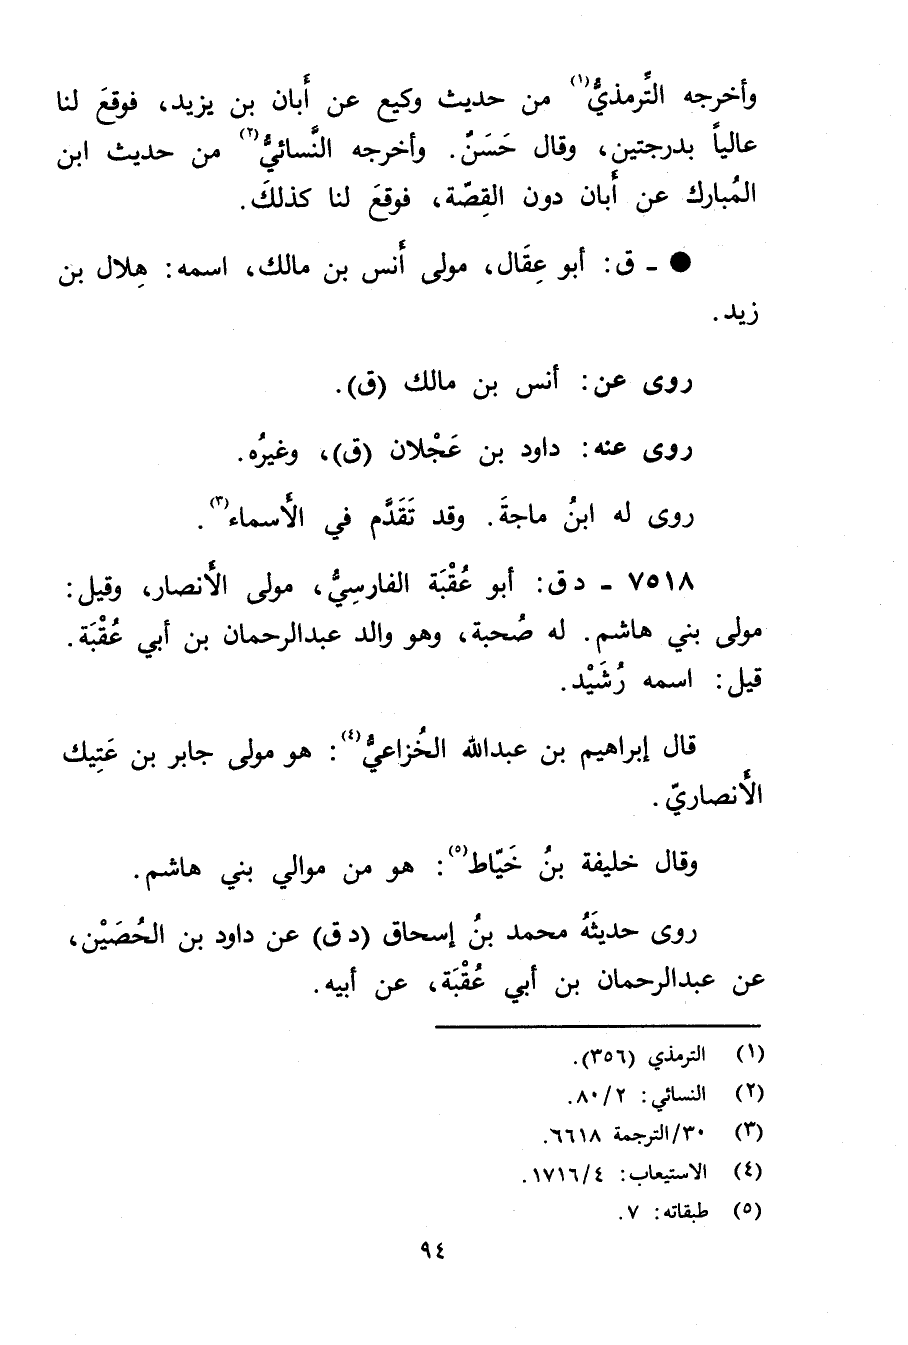 وأخرجه التِّرمذيُّ(١) من حديث وكيع عن أَبان بن يزيد، فوقعَ لنا
عالياً بدرجتين، وقال حَسَنٌ. وأخرجه النَّسائيُّ(٢) من حديث ابن
المُبارك عن أَبان دون القِصّة، فوقعَ لنا كذلكَ.
● ـ ق: أبو عِقَال، مولى أَنس بن مالك، اسمه: هِلال بن
زيد.
روى عن: أنس بن مالك (ق).
روى عنه: داود بن عَجْلان (ق)، وغيرُه.
روى له ابنُ ماجةَ. وقد تَقَدَّم في الأَسماء(٣).
٧٥١٨ ـ د ق: أبو عُقْبَة الفارسيُّ، مولى الأَنصار، وقيل:
مولى بني هاشم. له صُحبة، وهو والد عبدالرحمان بن أبي عُقْبَة.
قيل: اسمه رُشَيْد.
قال إبراهيم بن عبدالله الخُزاعيُّ(٤): هو مولى جابر بن عَتِيك
الأَنصاريّ.
وقال خليفة بنُ خَيّاط(٥): هو من موالي بني هاشم.
روى حديثَهُ محمد بنُ إسحاق (د ق) عن داود بن الحُصَيْن،
عن عبدالرحمان بن أبي عُقْبَة، عن أبيه.
(١) الترمذي (٣٥٦).
(٢) النسائي: ٨٠/٢.
(٣) ٣٠/الترجمة ٦٦١٨.
(٤) الاستيعاب: ١٧١٦/٤.
(٥) طبقاته: ٧.
٩٤